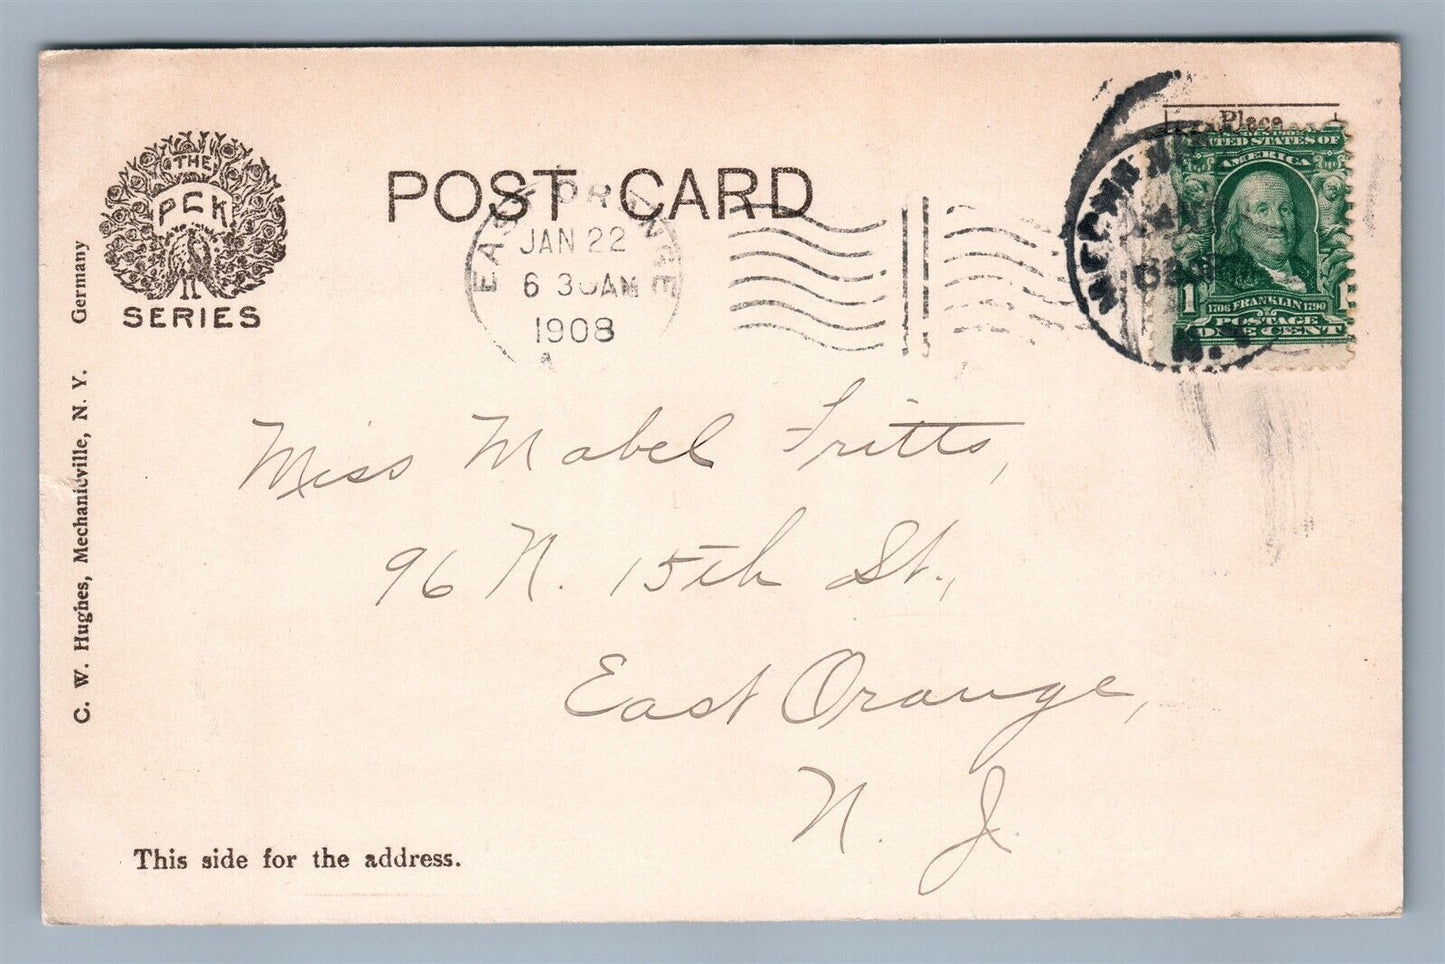 THE
PCK
SERIES
POST CARD
Place
UNITED STATES OF
AMERICA
1706 FRANKLIN 1790
1 1
POSTAGE
ONE CENT
EAST ORANGE
JAN 22
6 30 AM
1908
N.Y.
Miss Mabel Fritts,
96 N. 15th St.,
East Orange,
N. J.
This side for the address.
C. W. Hughes, Mechanicville, N. Y. Germany